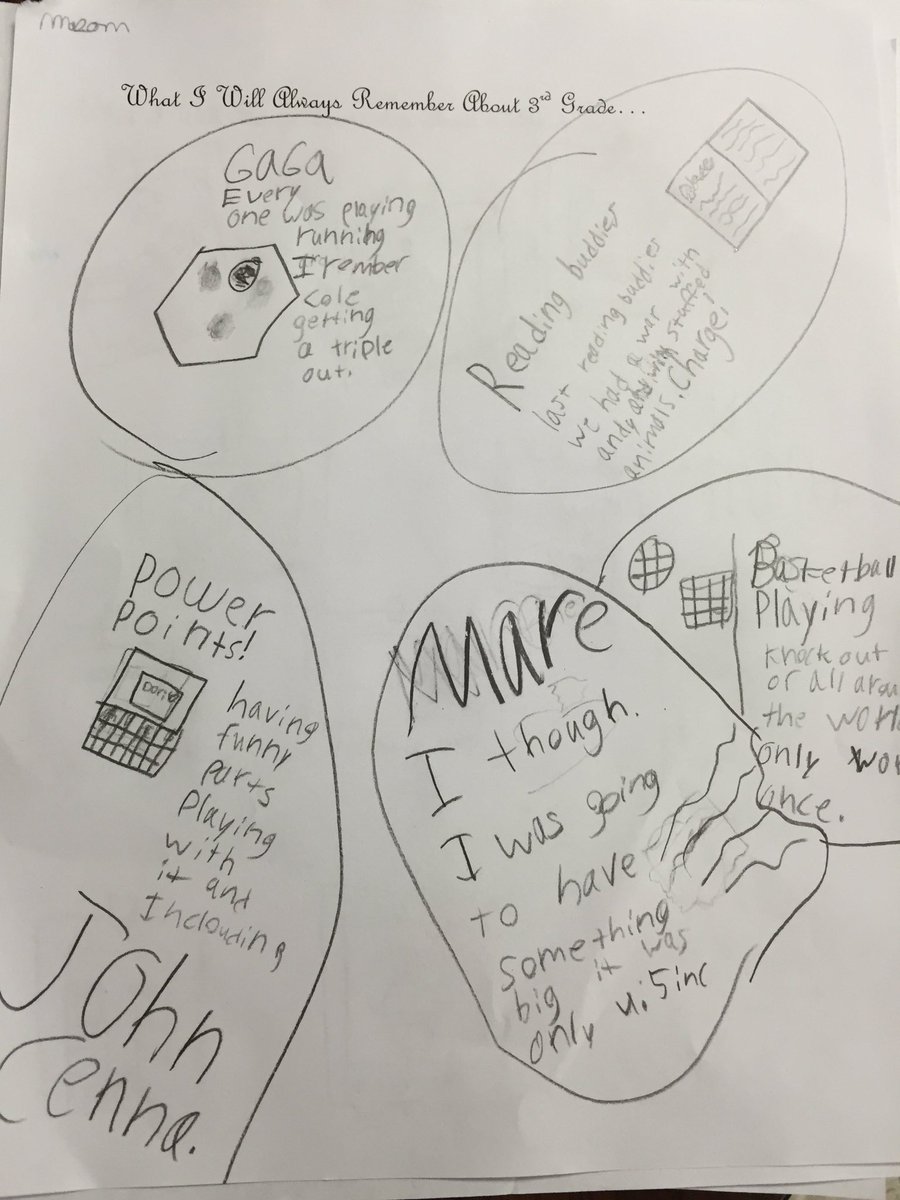 What I Will Always Remember About 3rd Grade...
GaGa
Every
one was playing
running
I rember
cole
getting
a triple
out.
Reading buddies
last reading buddies
we had a war with
and stuffed
animals. Charge!
Power
Points!
having
funny
parts
Playing
with
it and
Inclouding
John
Cenna.
Mare
I though.
I was going
to have
something
big it was
only 5 inc
Basketball
Playing
knock out
or all
the
only
once.